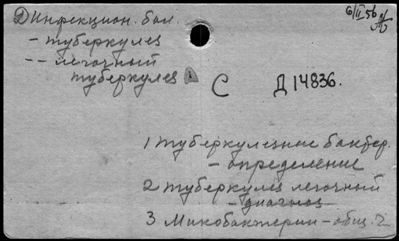 Инфекцион. бол.
6/II 56 г
- туберкулез
-- легочный
туберкулез
С Д14836.
1 туберкулезные бактер.
- определение
2 туберкулез легочный
- диагноз
3 Микобактерии - общ. ч.